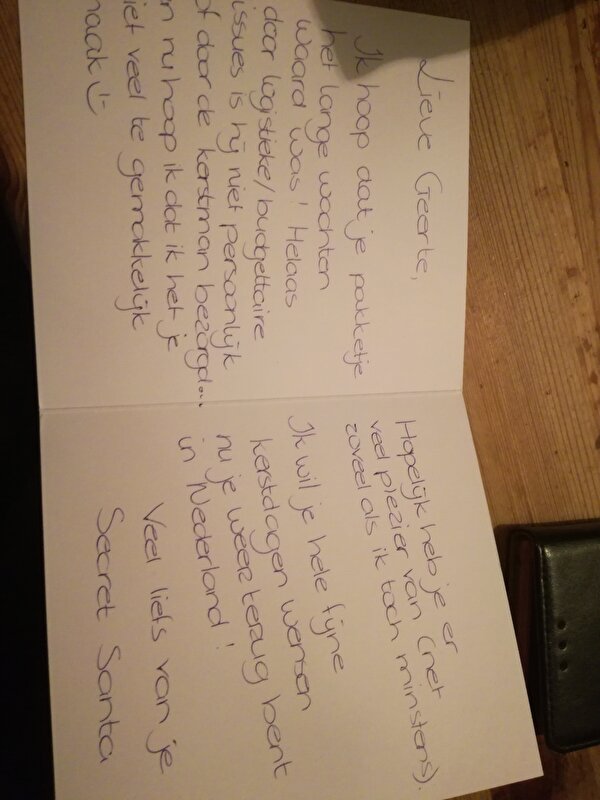 Lieve Geerte,
Ik hoop dat je pakketje
het lange wachten
waard was! Helaas
door logistieke/budgettaire
issues is hij niet persoonlijk
of door de kerstman bezorgd...
en nu hoop ik dat ik het je
niet veel te gemakkelijk
maak :)
Hopelijk heb je er
veel plezier van (net
zoveel als ik toch minstens).
Ik wil je hele fijne
kerstdagen wensen
nu je weer terug bent
in Nederland!
Veel liefs van je
Secret Santa